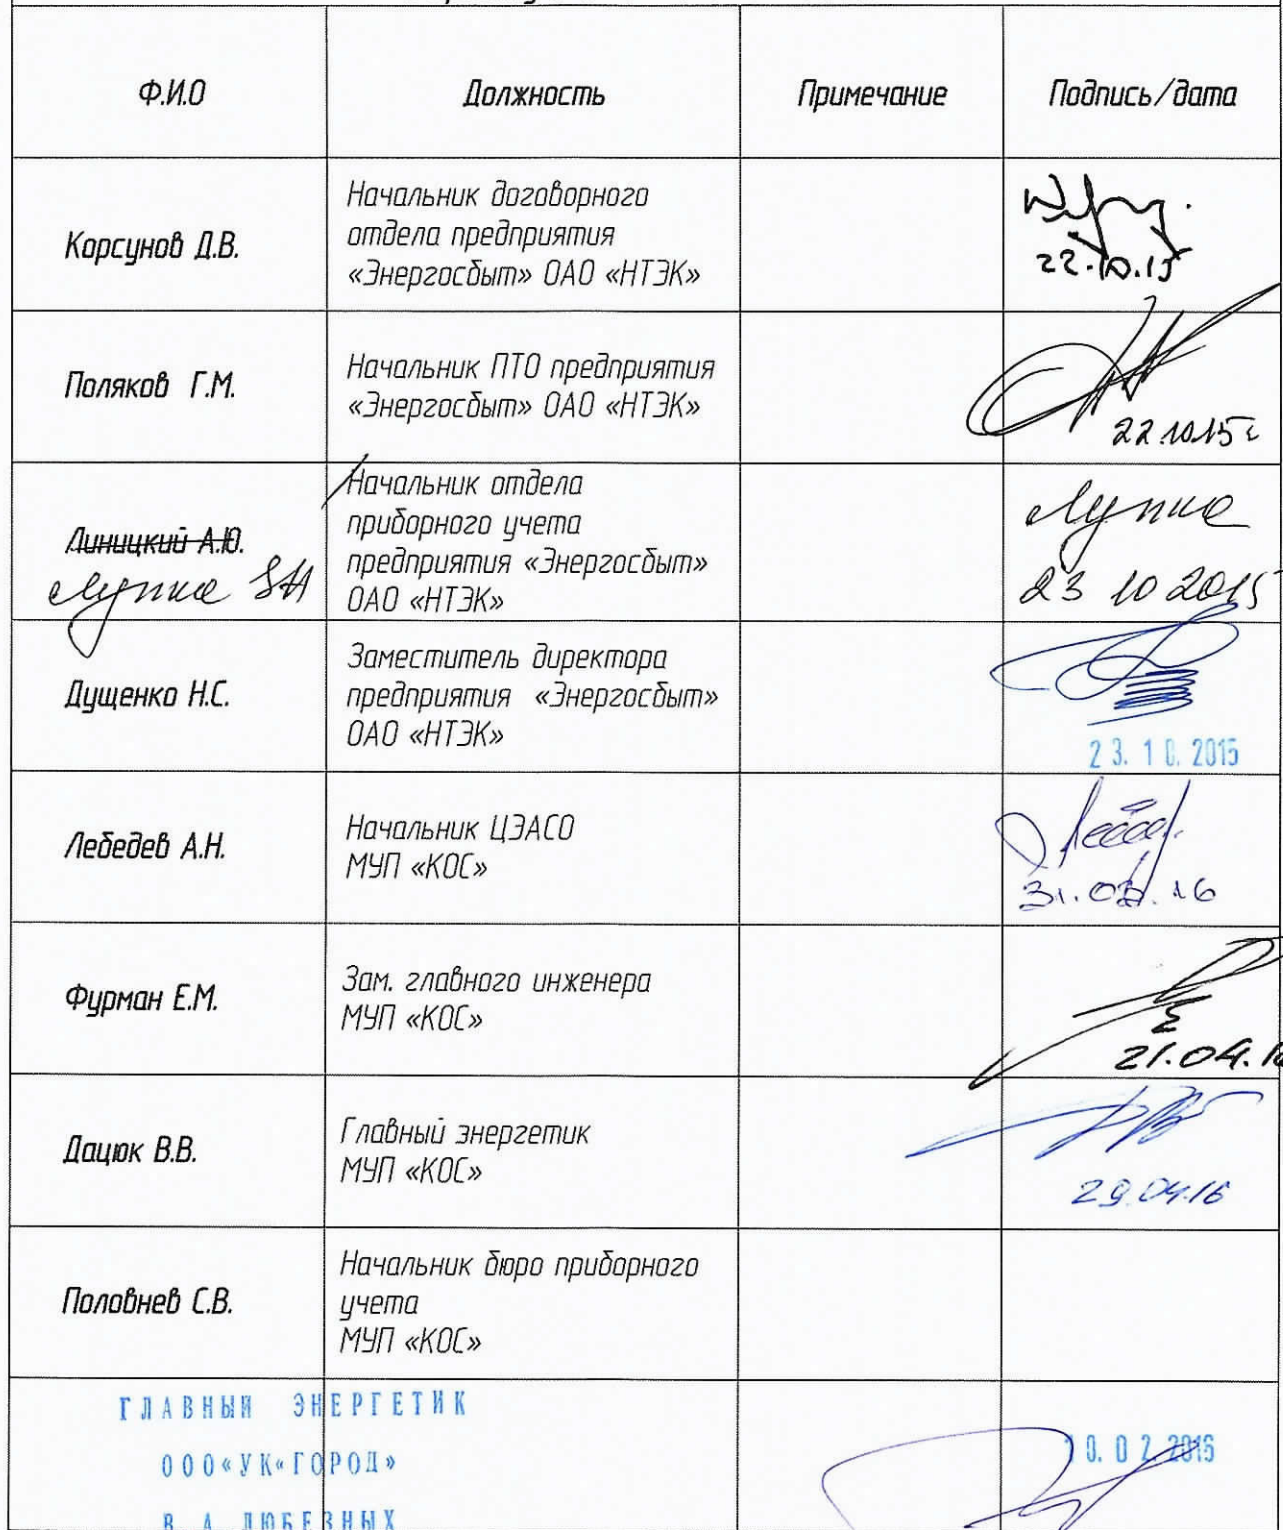 Ф.И.О
Должность
Примечание
Подпись/дата
Корсунов Д.В.
Начальник договорного
отдела предприятия
«Энергосбыт» ОАО «НТЭК»
22.10.15
Поляков Г.М.
Начальник ПТО предприятия
«Энергосбыт» ОАО «НТЭК»
22.10.15г
Линицкий А.Ю.
Лупка
Начальник отдела
приборного учета
предприятия «Энергосбыт»
ОАО «НТЭК»
Лупка
23 10 2015
Дущенко Н.С.
Заместитель директора
предприятия «Энергосбыт»
ОАО «НТЭК»
23.10.2015
Лебедев А.Н.
Начальник ЦЭАСО
МУП «КОС»
Фурман Е.М.
Зам. главного инженера
МУП «КОС»
21.04.16
Дацюк В.В.
Главный энергетик
МУП «КОС»
29.04.16
Половнев С.В.
Начальник бюро приборного
учета
МУП «КОС»
ГЛАВНЫЙ ЭНЕРГЕТИК
ООО«УК«ГОРОД»
В.А.ЛЮБЕЗНЫХ